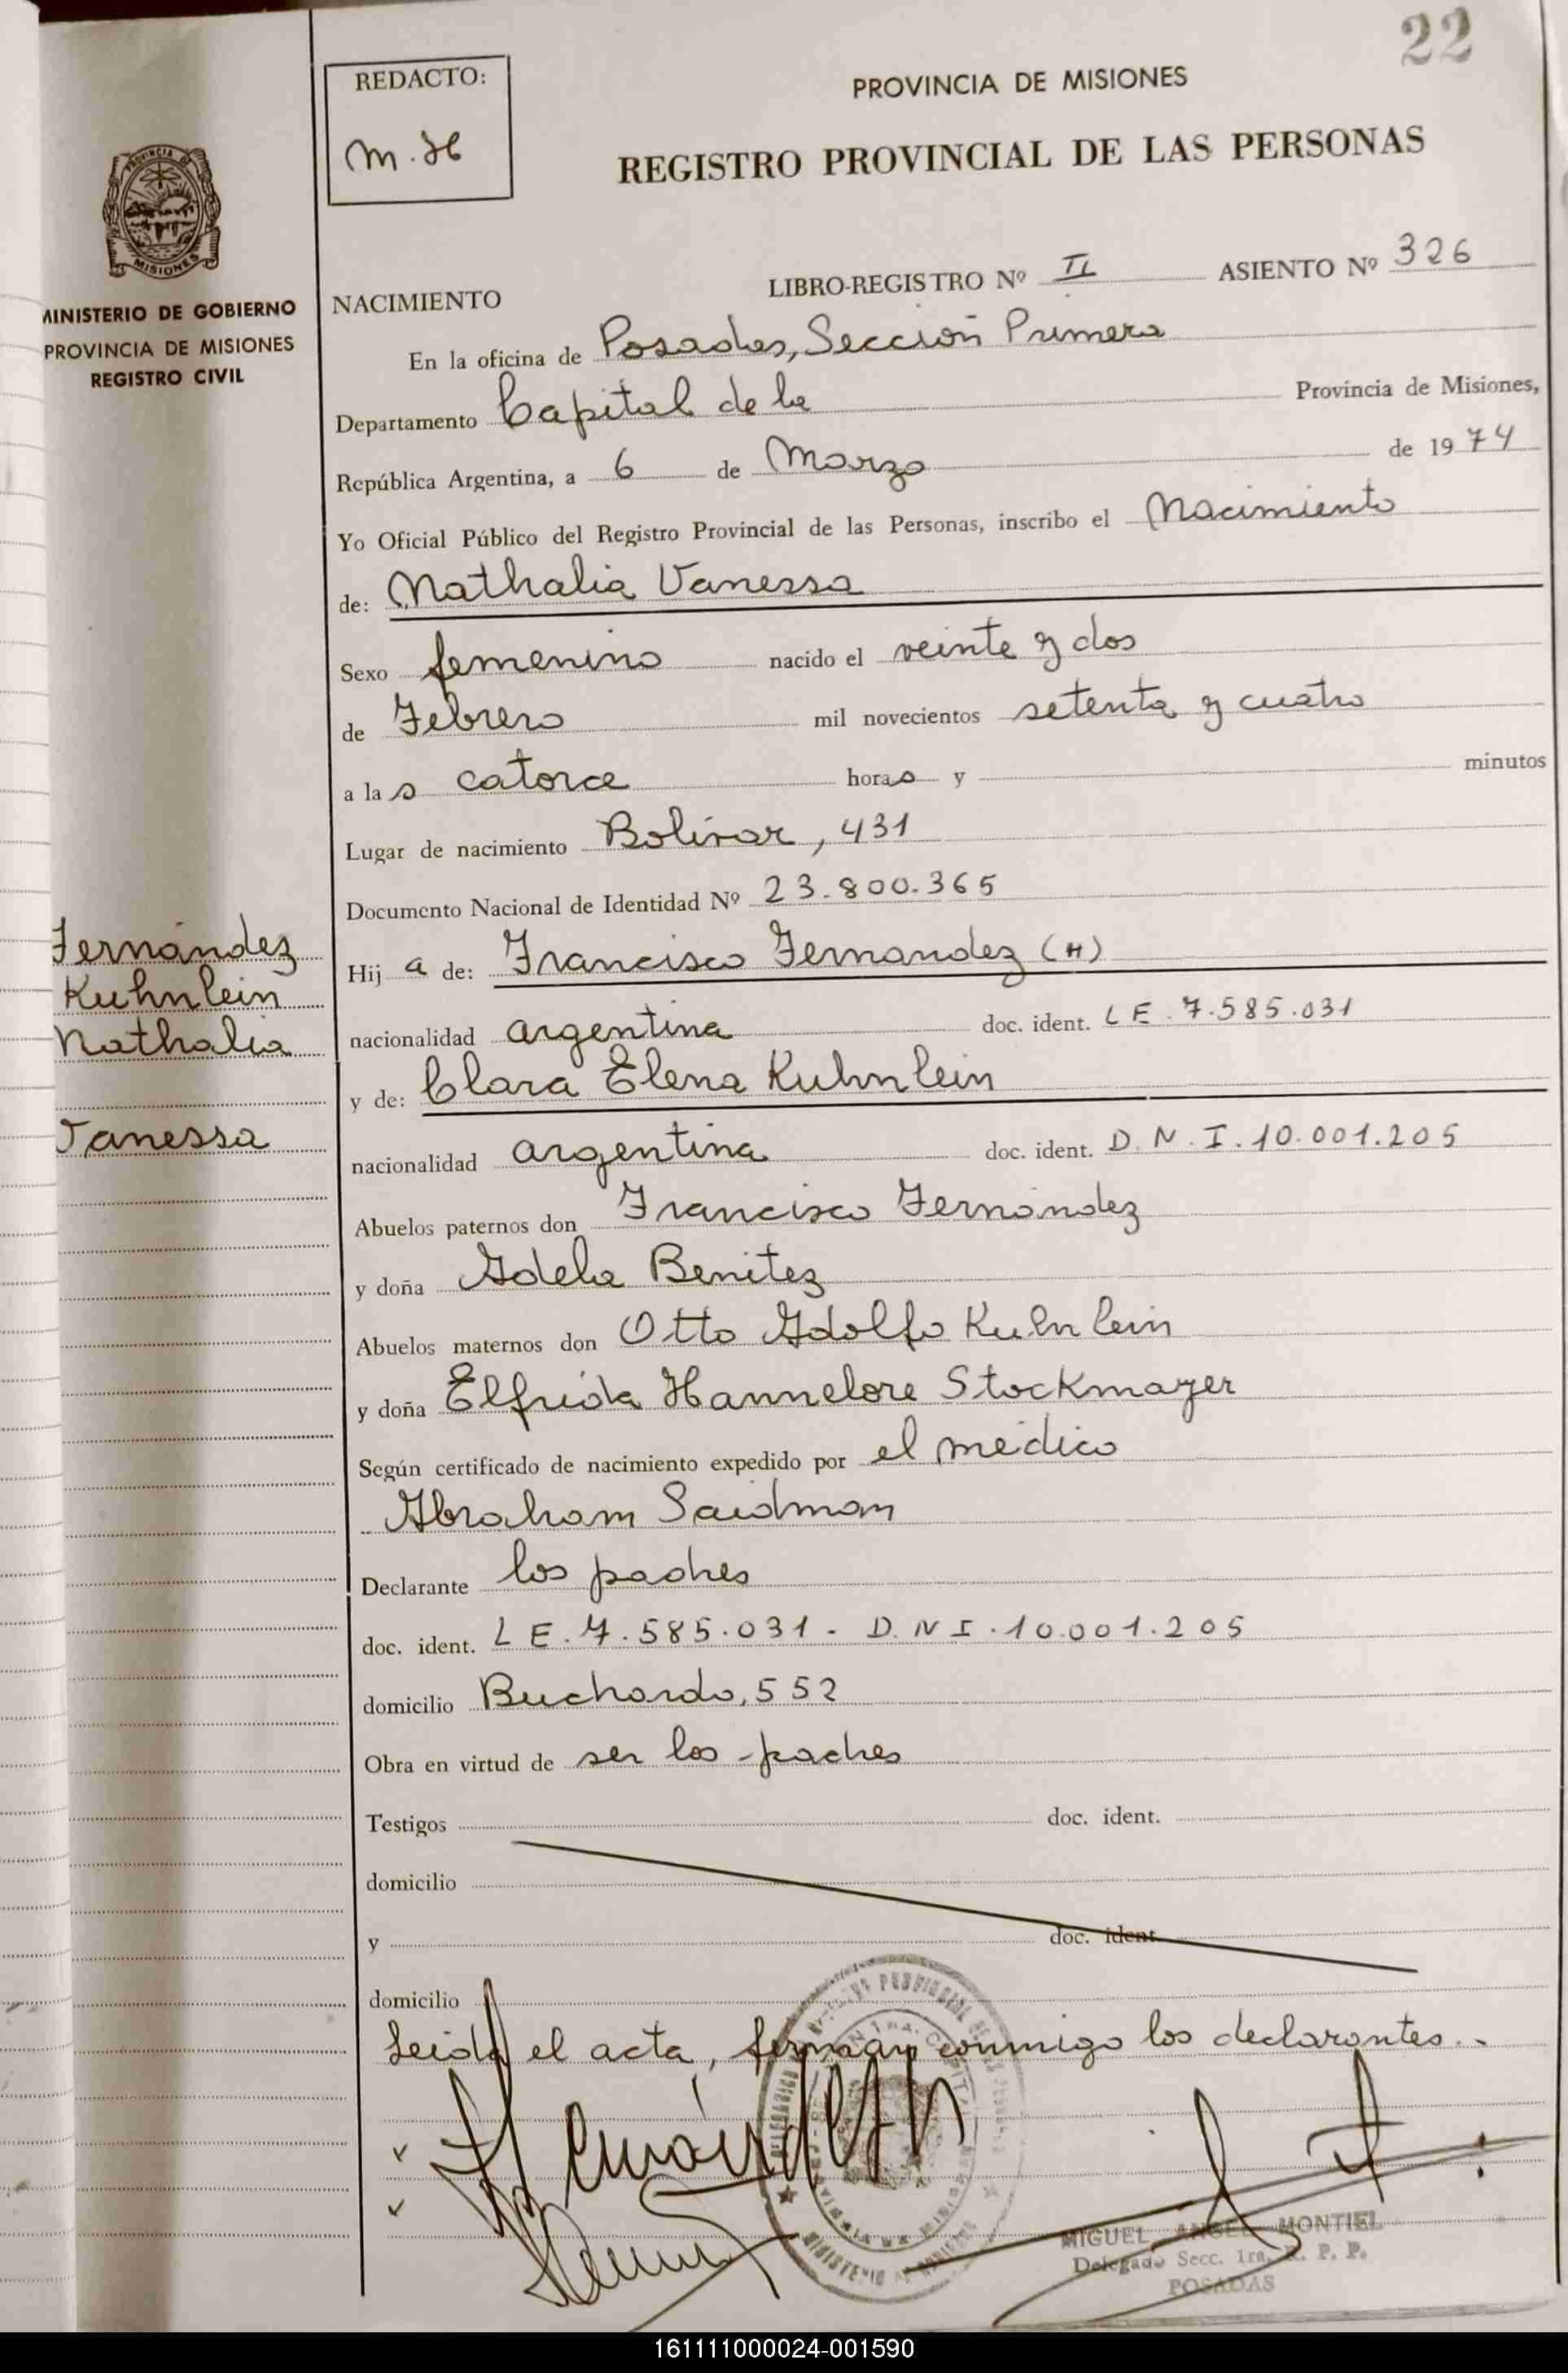 22
REDACTO:
M. H
PROVINCIA DE MISIONES
REGISTRO PROVINCIAL DE LAS PERSONAS
PROVINCIA DE
MISIONES
MINISTERIO DE GOBIERNO
PROVINCIA DE MISIONES
REGISTRO CIVIL
NACIMIENTO
LIBRO-REGISTRO Nº II ASIENTO Nº 326
En la oficina de Posadas, Sección Primera
Departamento Capital de la Provincia de Misiones,
República Argentina, a 6 de Marzo de 1974
Yo Oficial Público del Registro Provincial de las Personas, inscribo el Nacimiento
de: Nathalia Vanessa
Sexo femenino nacido el veinte y dos
de Febrero mil novecientos setenta y cuatro
a las catorce horas y minutos
Lugar de nacimiento Bolívar, 431
Documento Nacional de Identidad Nº 23.800.365
Fernández
Kuhnlein
Nathalia
Vanessa
Hija de: Francisco Fernandez (H)
nacionalidad argentina doc. ident. L E. 7.585.031
y de: Clara Elena Kuhnlein
nacionalidad argentina doc. ident. D. N. I. 10.001.205
Abuelos paternos don Francisco Fernández
y doña Adela Benitez
Abuelos maternos don Otto Adolfo Kuhnlein
y doña Elfrida Hannelore Stockmayer
Según certificado de nacimiento expedido por el médico
Abraham Saidman
Declarante los padres
doc. ident. L E. 7.585.031 - D. N I. 10.001.205
domicilio Buchardo, 552
Obra en virtud de ser los padres
Testigos doc. ident.
domicilio
y doc. ident.
domicilio
Leida el acta, firman conmigo los declarantes.-
MIGUEL ANGEL MONTIEL
Delegado Secc. 1ra. R. P. P.
POSADAS
161111000024-001590